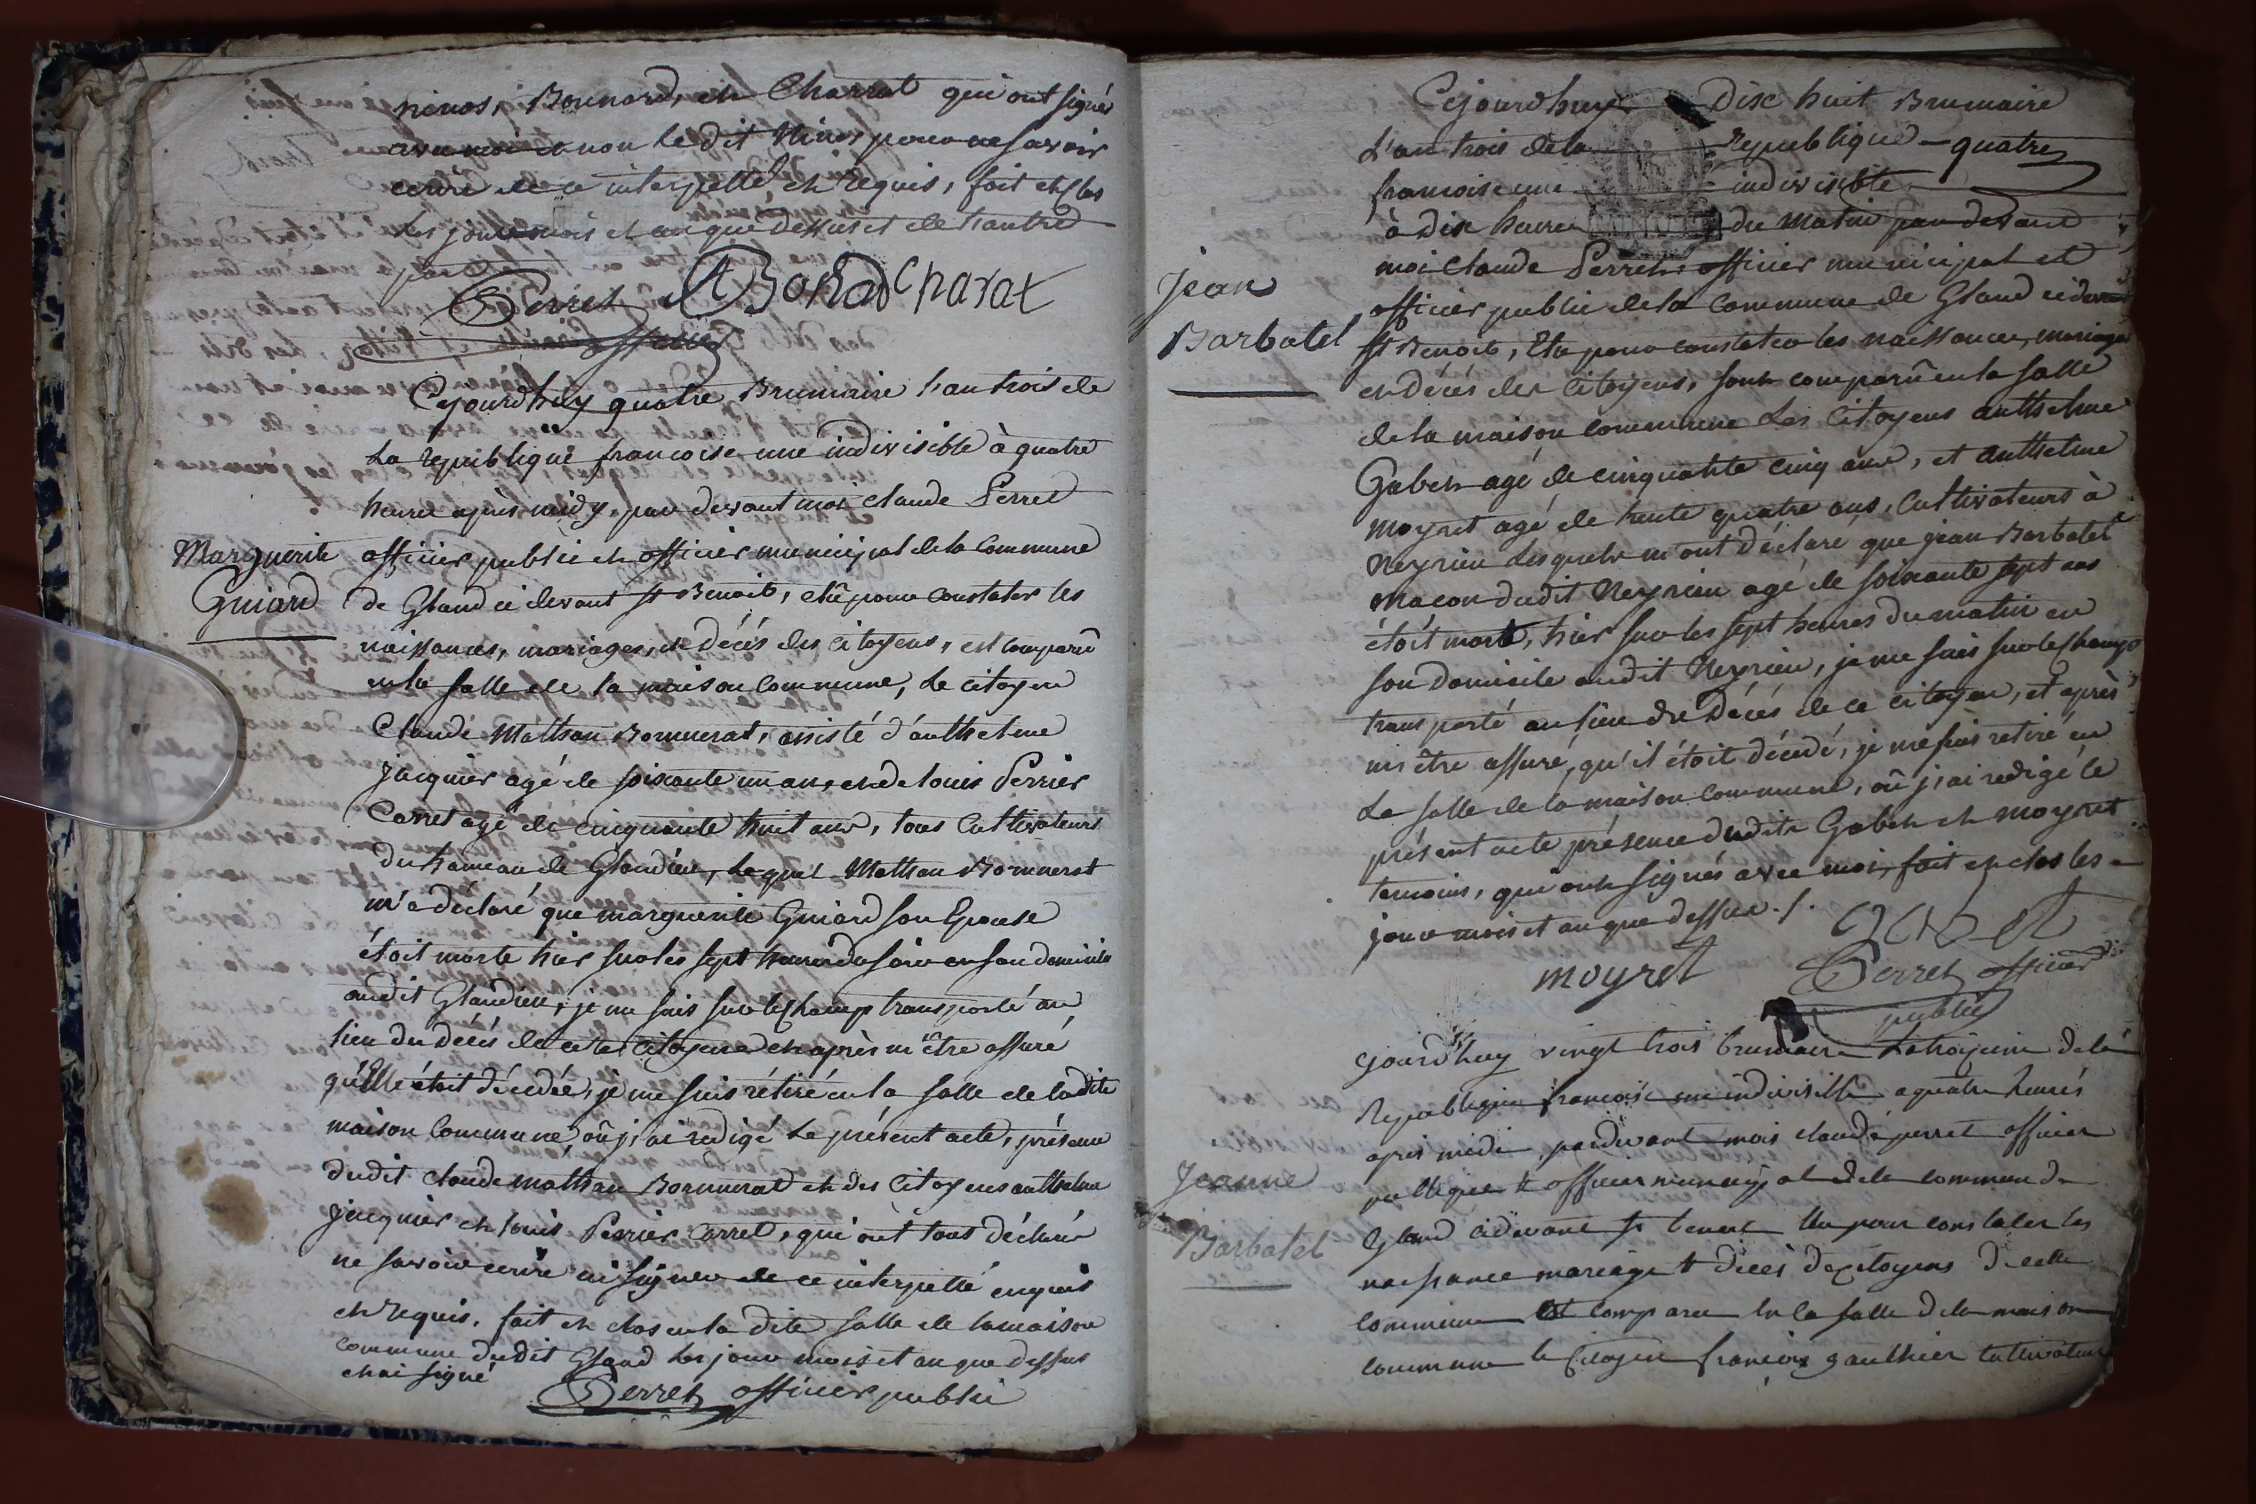 ninos, Bonnard, et Charrat qui ont signés
avec moi et non le dit Ninos pour ne savoir
ecrire de ce interpellé et requis, fait et clos
les jour mois et an que dessus et de l'autre
part
Perret Bonard Charat
officier
Cejourdhuy quatre Brumaire l'an trois de
La republique francoise une indivisible à quatre
heures après midy, par devant moi claude Perret
Marguerite
Guiard
officier public et officier municipal de la Commune
de Gland ci devant st Benoit, élu pour constater les
naissances, mariages, et décés des citoyens, est comparu
en la salle de la maison Commune, Le citoyen
Claude Mathan Bornnerat, assisté d'anthelme
jacquier agé de soixante un ans, et de louis Perrier
Carret agé de cinquante huit ans, tous Cultivateurs
du hameau de Glandieu, Lequel Mathan Bornnerat
m'a déclaré que marguerite Guiard son Epouse
étoit morte hier sur les sept heures du soir en son domicile
audit Glandieu, je me suis sur le champ transporté au
lieu du décés de cette Citoyenne et après m'être assuré
qu'Elle étoit décédée, je me suis rétiré en la salle de ladite
maison Commune où j'ai redigé Le présent acte, présence
dudit claude mathan Bornnerat et des Citoyens anthelme
jacquier et louis Perrier Carret, qui ont tous déclaré
ne savoir ecrire ni signer de ce interpellé enquis
et requis, fait et clos en la dite salle de la maison
Commune dudit Gland les jour mois et an que dessus
et ai signé
Perret officier public
Cejourdhuy Dix huit Brumaire
L'an trois de la Republique quatre
francoise une indivisible
à Dix heures du Matin par devant
moi Claude Perret, officier municipal et
Jean
Barbatel
officier public de la Commune de Gland ci devant
st Benoit, Elu pour constater les naissances, mariages
et décés des Citoyens, sont comparû en la salle
de la maison commune Les Citoyens anthelme
Gabet agé de cinquante cinq ans, et anthelme
moyret agé de trente quatre ans, Cultivateurs à
Neyrieu Lesquels m'ont déclaré que jean Barbatel
macon dudit Neyrieu agé de soixante sept ans
étoit mort, hier sur les sept heures du matin en
son domicile audit Neyrieu, je me suis sur le champ
transporté au lieu du Décés de ce citoyen, et après
m'être assuré, qu'il étoit décédé, je me suis retiré en
La salle de la maison commune, où j'ai redigé le
présent acte présence dudits Gabet et moyret
temoins, qui ont signés avec moi, fait et clos les
jour mois et an que dessus ./.
moyret
Perret officier
public
cejourdhuy vingt trois brumaire Latroizieme de la
Republique francoise une indivisible a quatre heures
apres midi, pardevant mois claude perret officier
publique et officier municipal de la commun de
Jeanne
Barbatel
Gland cidevant st benoit Elu pour constater les
naissance mariage et décès de citoyens de cette
commune est comparu en la salle de la maison
commune le Citoyen francois gauthier cultivateur